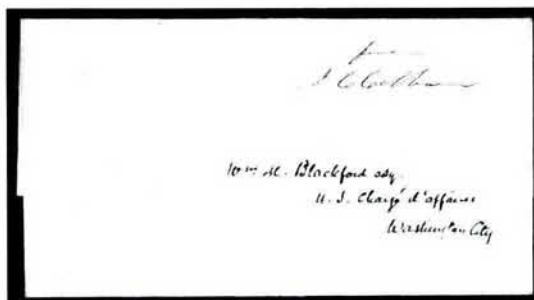 free
J C Calhoun
Wm. M. Blackford esq.
U. S. Chargé d'affaires
Washington City